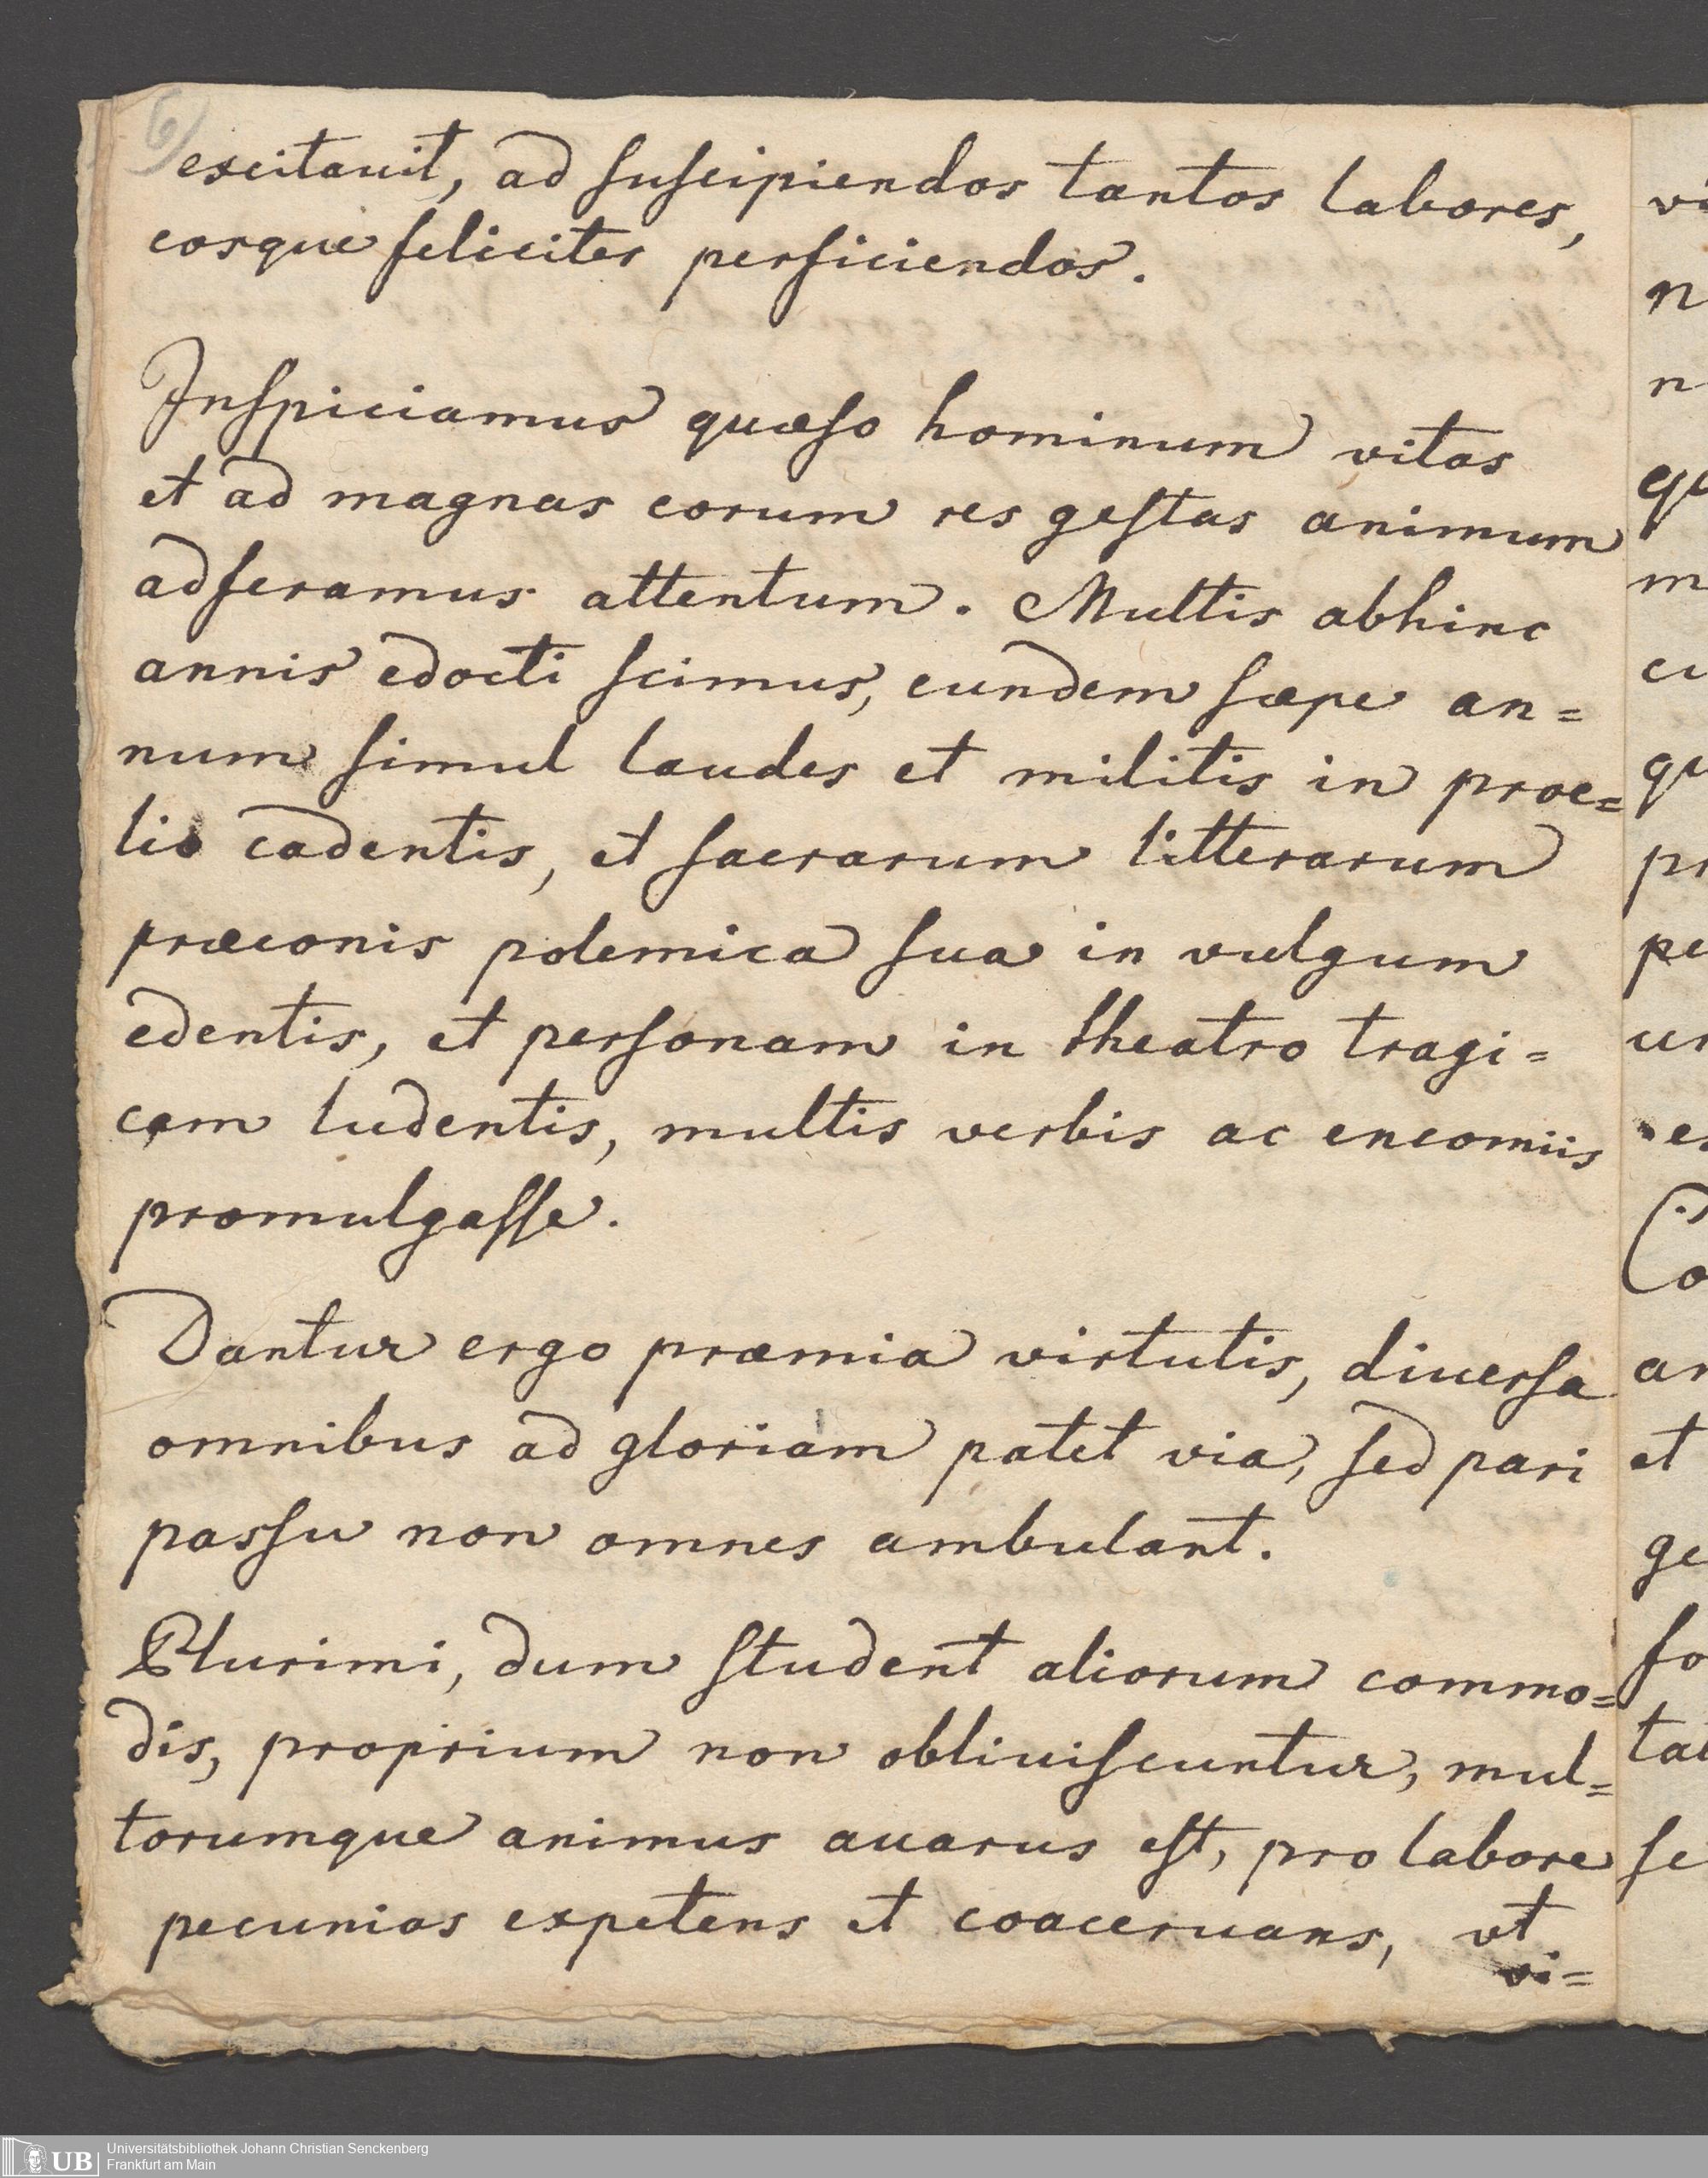 6)
excitauit, ad suscipiendos tantos labores,
eosque feliciter perficiendos.
Inspiciamus quæso hominum vitas
et ad magnas eorum res gestas animum
adferamus attentum. Multis abhinc
annis edocti scimus, eundem sæpe an=
num simul laudes et militis in proe=
lio cadentis, et sacrarum litterarum
præconis polemica sua in vulgum
edentis, et personam in theatro tragi=
cam ludentis, multis verbis ac encomiis
promulgasse.
Dantur ergo præmia virtutis, diuersa
omnibus ad gloriam patet via, sed pari
passu non omnes ambulant.
Plurimi, dum student aliorum commo=
dis, proprium non obliuiscuntur, mul=
torumque animus auarus est, pro labore
pecunias expetens et coaceruans, vt
vi=
UB
Universitätsbibliothek Johann Christian Senckenberg
Frankfurt am Main